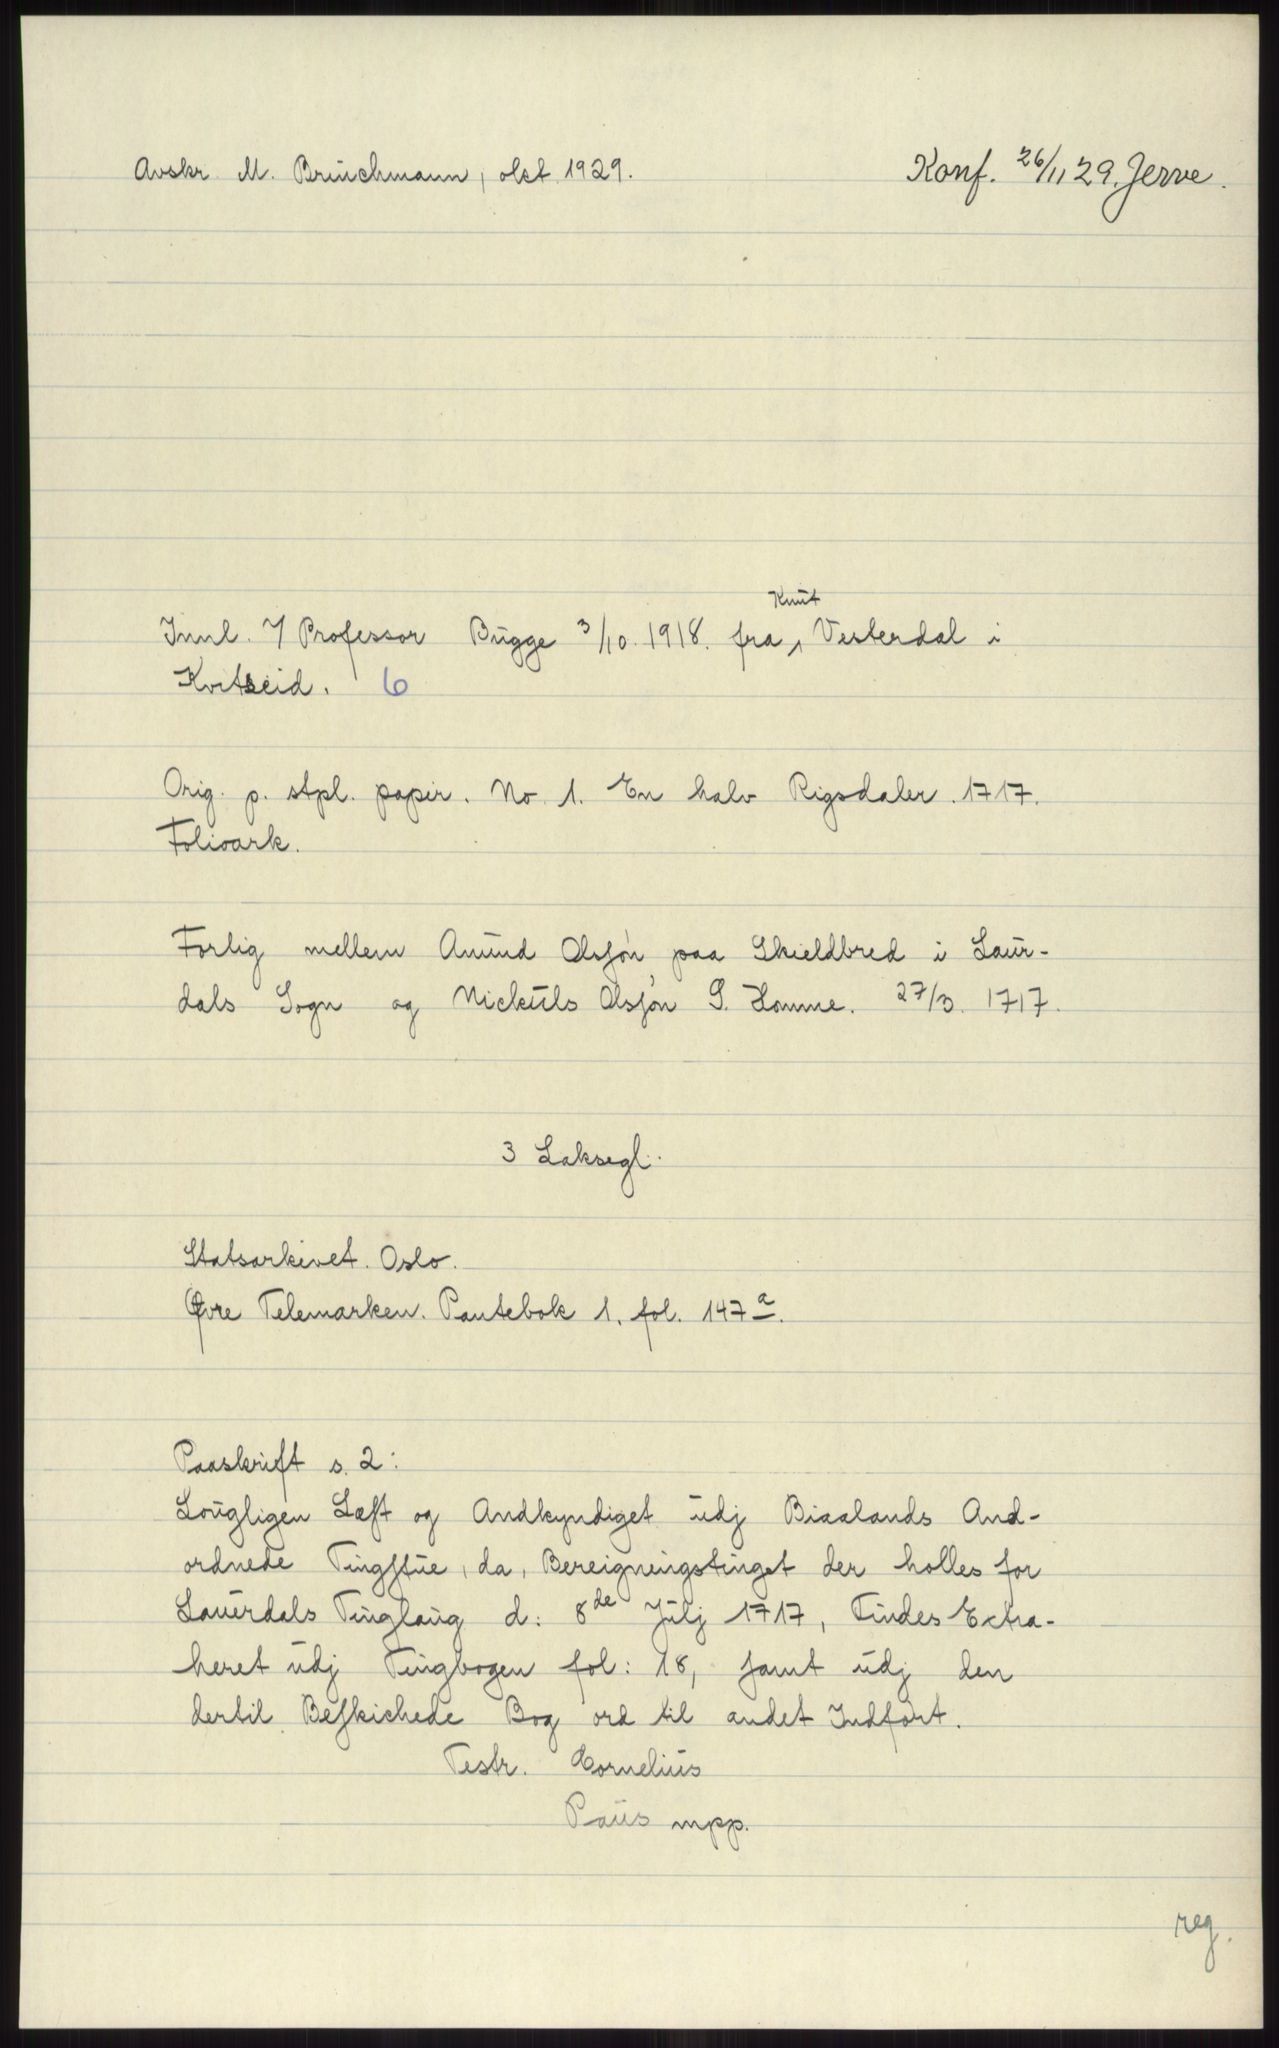 Avskr. M. Brüchmann, okt. 1929.
Konf. 26/11 29. Jerve.
Knut
Innl. 7 Professor Bugge 3/10. 1918. fra Vesterdal i
Kvitseid. 6
Orig. p. stpl. papir. No 1. En halv Rigsdaler. 1717.
Folioark.
Forlig mellem Anund Olsjøn paa Skieldbred i Laur-
dals Sogn og Nickuls Olsjøn S. Homme. 27/3. 1717.
3 Laksegl.
Statsarkivet. Oslo.
Øvre Telemarken. Pantebok 1. fol. 147 a.
Paaskrift s. 2:
Lougligen Læst og Andkyndiget udj Biaalands And-
ordnede Tingstue, da, Bereigningstinget der holles for
Lauerdals Tinglaug d: 8de Julj 1717, Findes Extra-
heret udj Tingbogen fol: 18, samt udj den
dertil Beskichede Bog ord til andet Indført.
Testr. Cornelius
Paus mpp.
reg.